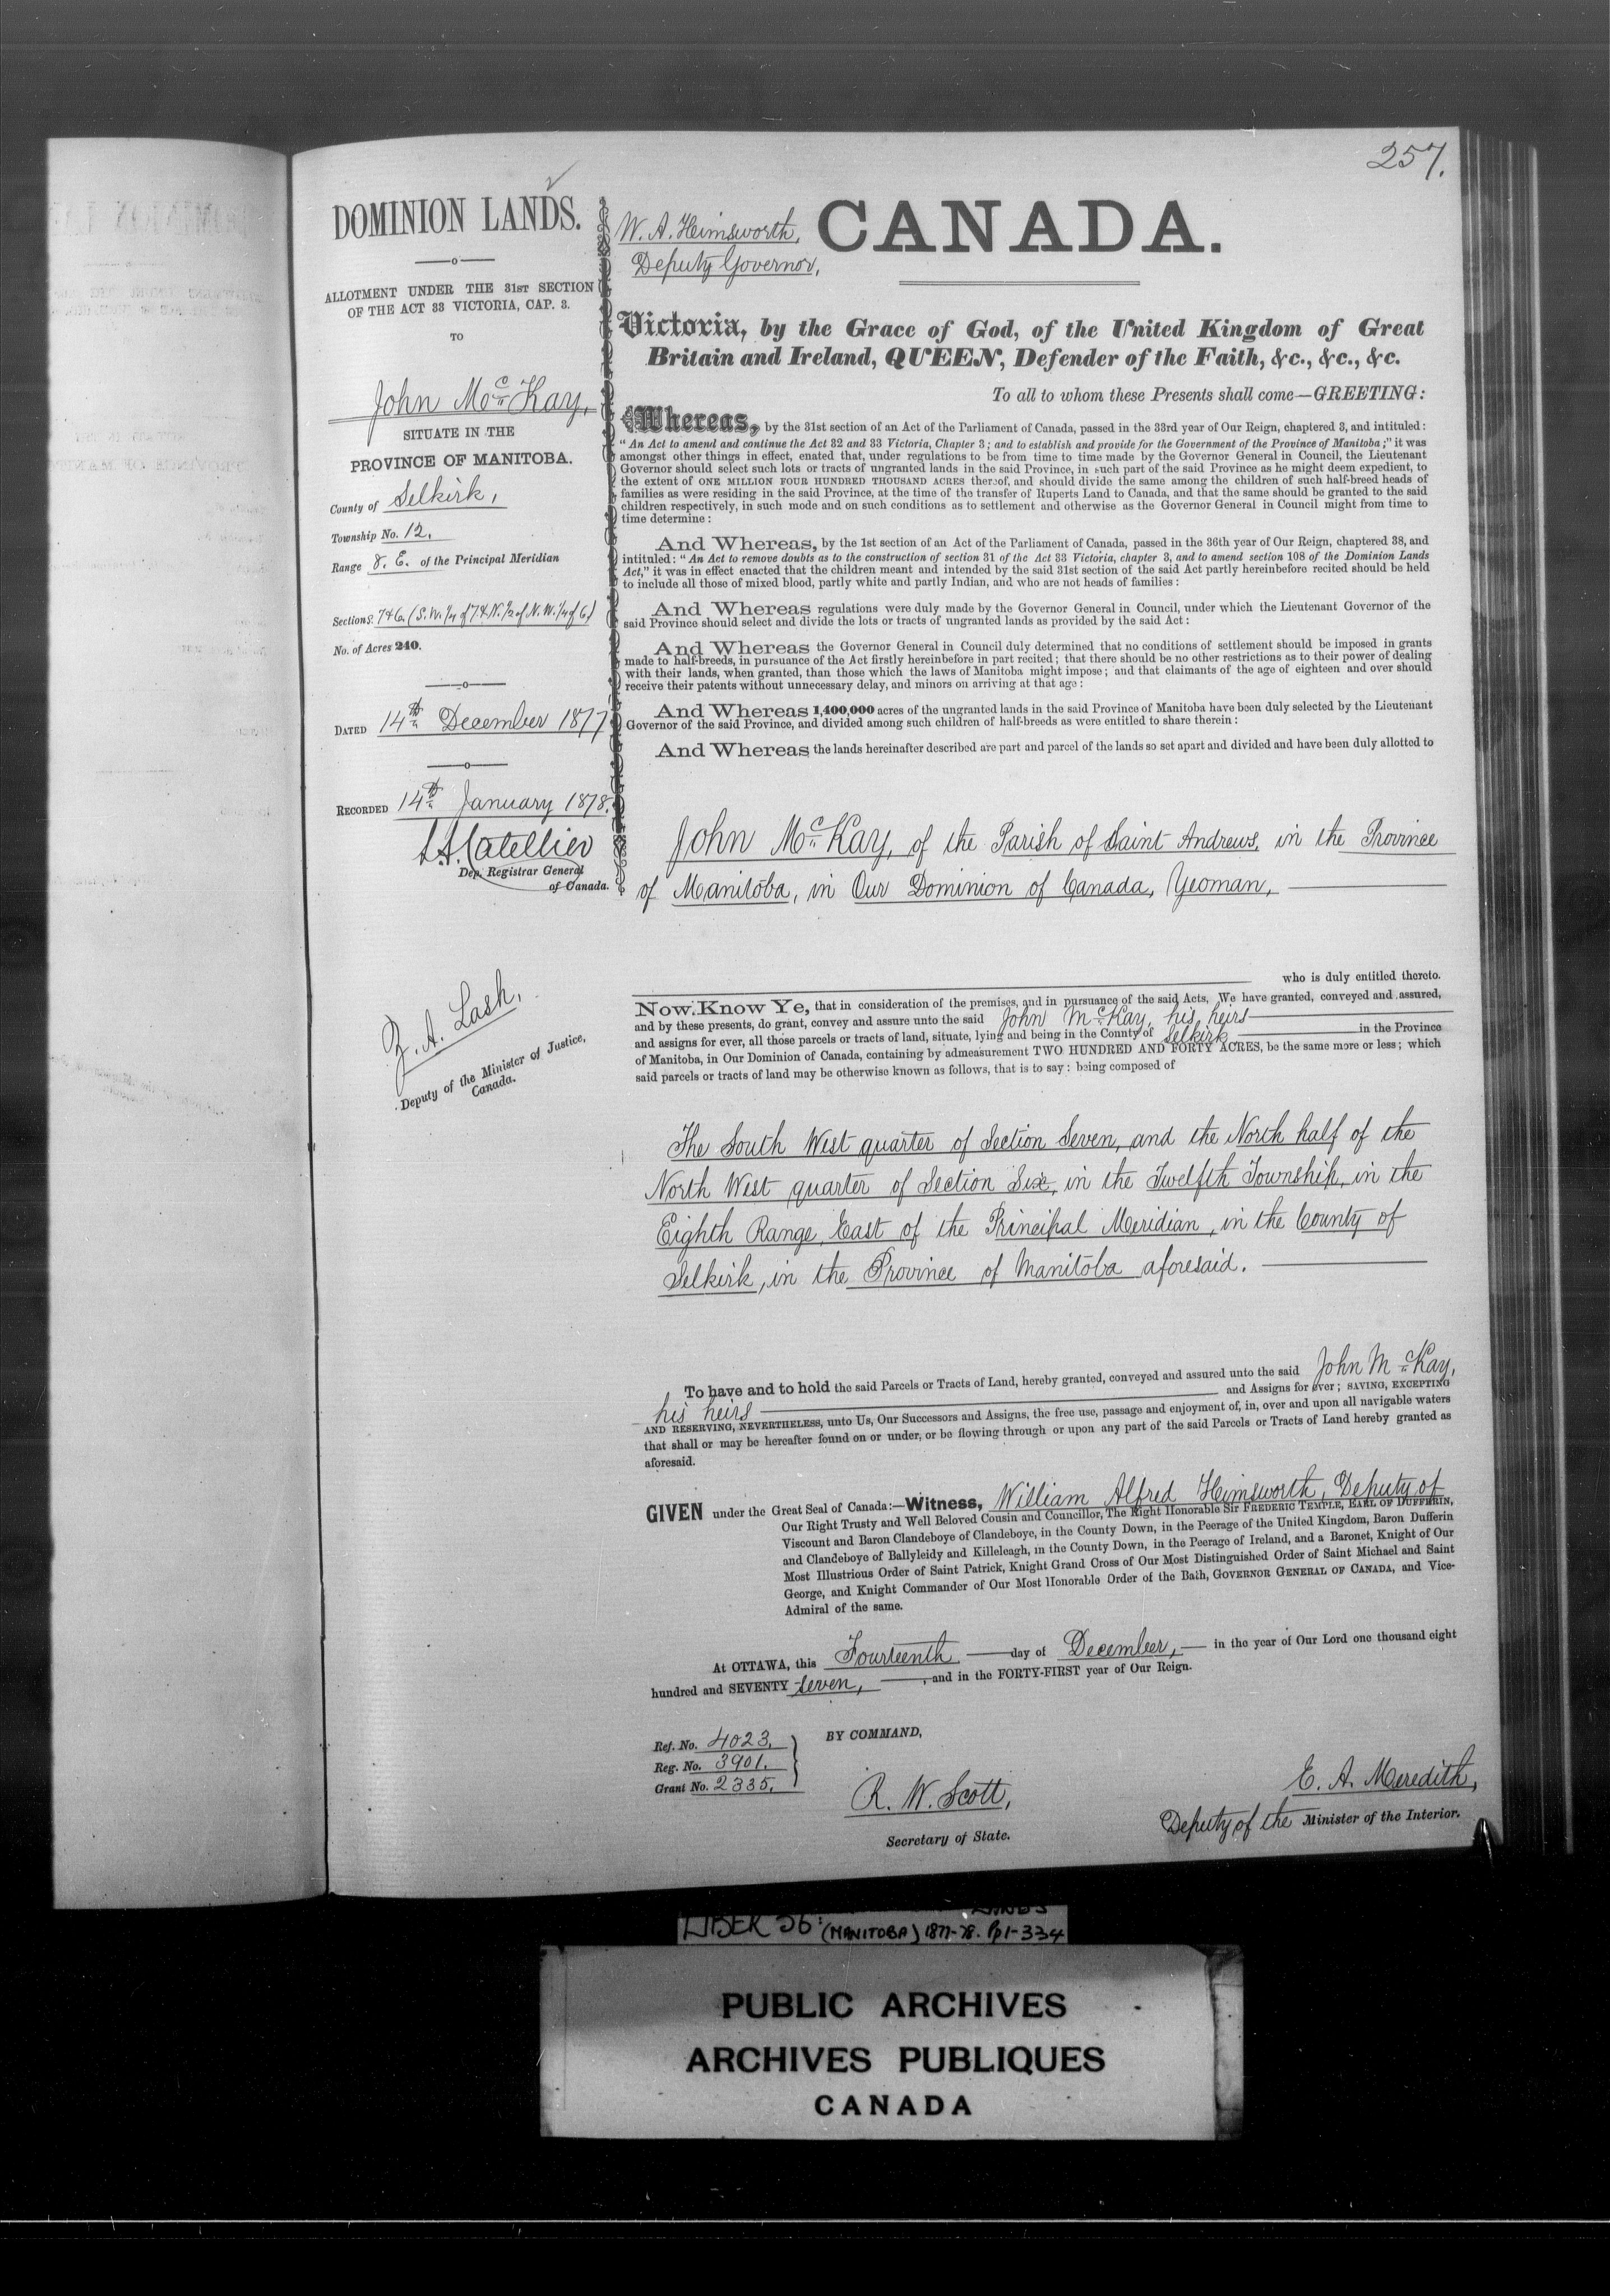 257.
DOMINION LANDS.
ALLOTMENT UNDER THE 31ST SECTION
OF THE ACT 33 VICTORIA, CAP. 3.
TO
John McKay,
SITUATE IN THE
PROVINCE OF MANITOBA.
County of Selkirk,
Township No. 12,
Range 8. E. of the Principal Meridian
Sections. 7 & 6. (S.W. 1/4 of 7 & N. 1/2 of N.W. 1/4 of 6)
No. of Acres 240.
DATED 14th December 1877
RECORDED 14th January 1878.
L.A. Catellier
Dep. Registrar General
of Canada.
Z. A. Lash,
Deputy of the Minister of Justice,
Canada.
W. A. Himsworth,
Deputy Governor,
CANADA.
Victoria, by the Grace of God, of the United Kingdom of Great
Britain and Ireland, QUEEN, Defender of the Faith, &c., &c., &c.
To all to whom these Presents shall come—GREETING:
Whereas, by the 31st section of an Act of the Parliament of Canada, passed in the 33rd year of Our Reign, chaptered 3, and intituled:
"An Act to amend and continue the Act 32 and 33 Victoria, Chapter 3; and to establish and provide for the Government of the Province of Manitoba;" it was
amongst other things in effect, enated that, under regulations to be from time to time made by the Governor General in Council, the Lieutenant
Governor should select such lots or tracts of ungranted lands in the said Province, in such part of the said Province as he might deem expedient, to
the extent of ONE MILLION FOUR HUNDRED THOUSAND ACRES thereof, and should divide the same among the children of such half-breed heads of
families as were residing in the said Province, at the time of the transfer of Ruperts Land to Canada, and that the same should be granted to the said
children respectively, in such mode and on such conditions as to settlement and otherwise as the Governor General in Council might from time to
time determine:
And Whereas, by the 1st section of an Act of the Parliament of Canada, passed in the 36th year of Our Reign, chaptered 38, and
intituled: "An Act to remove doubts as to the construction of section 31 of the Act 33 Victoria, chapter 3, and to amend section 108 of the Dominion Lands
Act," it was in effect enacted that the children meant and intended by the said 31st section of the said Act partly hereinbefore recited should be held
to include all those of mixed blood, partly white and partly Indian, and who are not heads of families:
And Whereas regulations were duly made by the Governor General in Council, under which the Lieutenant Governor of the
said Province should select and divide the lots or tracts of ungranted lands as provided by the said Act:
And Whereas the Governor General in Council duly determined that no conditions of settlement should be imposed in grants
made to half-breeds, in pursuance of the Act firstly hereinbefore in part recited; that there should be no other restrictions as to their power of dealing
with their lands, when granted, than those which the laws of Manitoba might impose; and that claimants of the age of eighteen and over should
receive their patents without unnecessary delay, and minors on arriving at that age:
And Whereas 1,400,000 acres of the ungranted lands in the said Province of Manitoba have been duly selected by the Lieutenant
Governor of the said Province, and divided among such children of half-breeds as were entitled to share therein:
And Whereas the lands hereinafter described are part and parcel of the lands so set apart and divided and have been duly allotted to
John McKay, of the Parish of Saint Andrews, in the Province
of Manitoba, in Our Dominion of Canada, Yeoman,
who is duly entitled thereto.
Now Know Ye, that in consideration of the premises, and in pursuance of the said Acts, We have granted, conveyed and assured,
and by these presents, do grant, convey and assure unto the said John McKay, his heirs
and assigns for ever, all those parcels or tracts of land, situate, lying and being in the County of Selkirk in the Province
of Manitoba, in Our Dominion of Canada, containing by admeasurement TWO HUNDRED AND FORTY ACRES, be the same more or less; which
said parcels or tracts of land may be otherwise known as follows, that is to say: being composed of
The South West quarter of Section Seven, and the North half of the
North West quarter of Section Six, in the Twelfth Township, in the
Eighth Range, East of the Principal Meridian, in the County of
Selkirk, in the Province of Manitoba aforesaid.
To have and to hold the said Parcels or Tracts of Land, hereby granted, conveyed and assured unto the said John McKay,
his heirs and Assigns for ever; SAVING, EXCEPTING
AND RESERVING, NEVERTHELESS, unto Us, Our Successors and Assigns, the free use, passage and enjoyment of, in, over and upon all navigable waters
that shall or may be hereafter found on or under, or be flowing through or upon any part of the said Parcels or Tracts of Land hereby granted as
aforesaid.
GIVEN under the Great Seal of Canada:—Witness, William Alfred Himsworth, Deputy of
Our Right Trusty and Well Beloved Cousin and Councillor, The Right Honorable Sir FREDERIC TEMPLE, EARL OF DUFFERIN,
Viscount and Baron Clandeboye of Clandeboye, in the County Down, in the Peerage of the United Kingdom, Baron Dufferin
and Clandeboye of Ballyleidy and Killeleagh, in the County Down, in the Peerage of Ireland, and a Baronet, Knight of Our
Most Illustrious Order of Saint Patrick, Knight Grand Cross of Our Most Distinguished Order of Saint Michael and Saint
George, and Knight Commander of Our Most Honorable Order of the Bath, GOVERNOR GENERAL OF CANADA, and Vice-
Admiral of the same.
At OTTAWA, this Fourteenth day of December, in the year of Our Lord one thousand eight
hundred and SEVENTY seven, , and in the FORTY-FIRST year of Our Reign.
Ref. No. 4023.
Reg. No. 3901.
Grant No. 2335.
BY COMMAND,
R. W. Scott,
Secretary of State.
E. A. Meredith,
Deputy of the Minister of the Interior.
LIBER 56: LANDS
(MANITOBA) 1877-78. Pp 1-334
PUBLIC ARCHIVES
ARCHIVES PUBLIQUES
CANADA